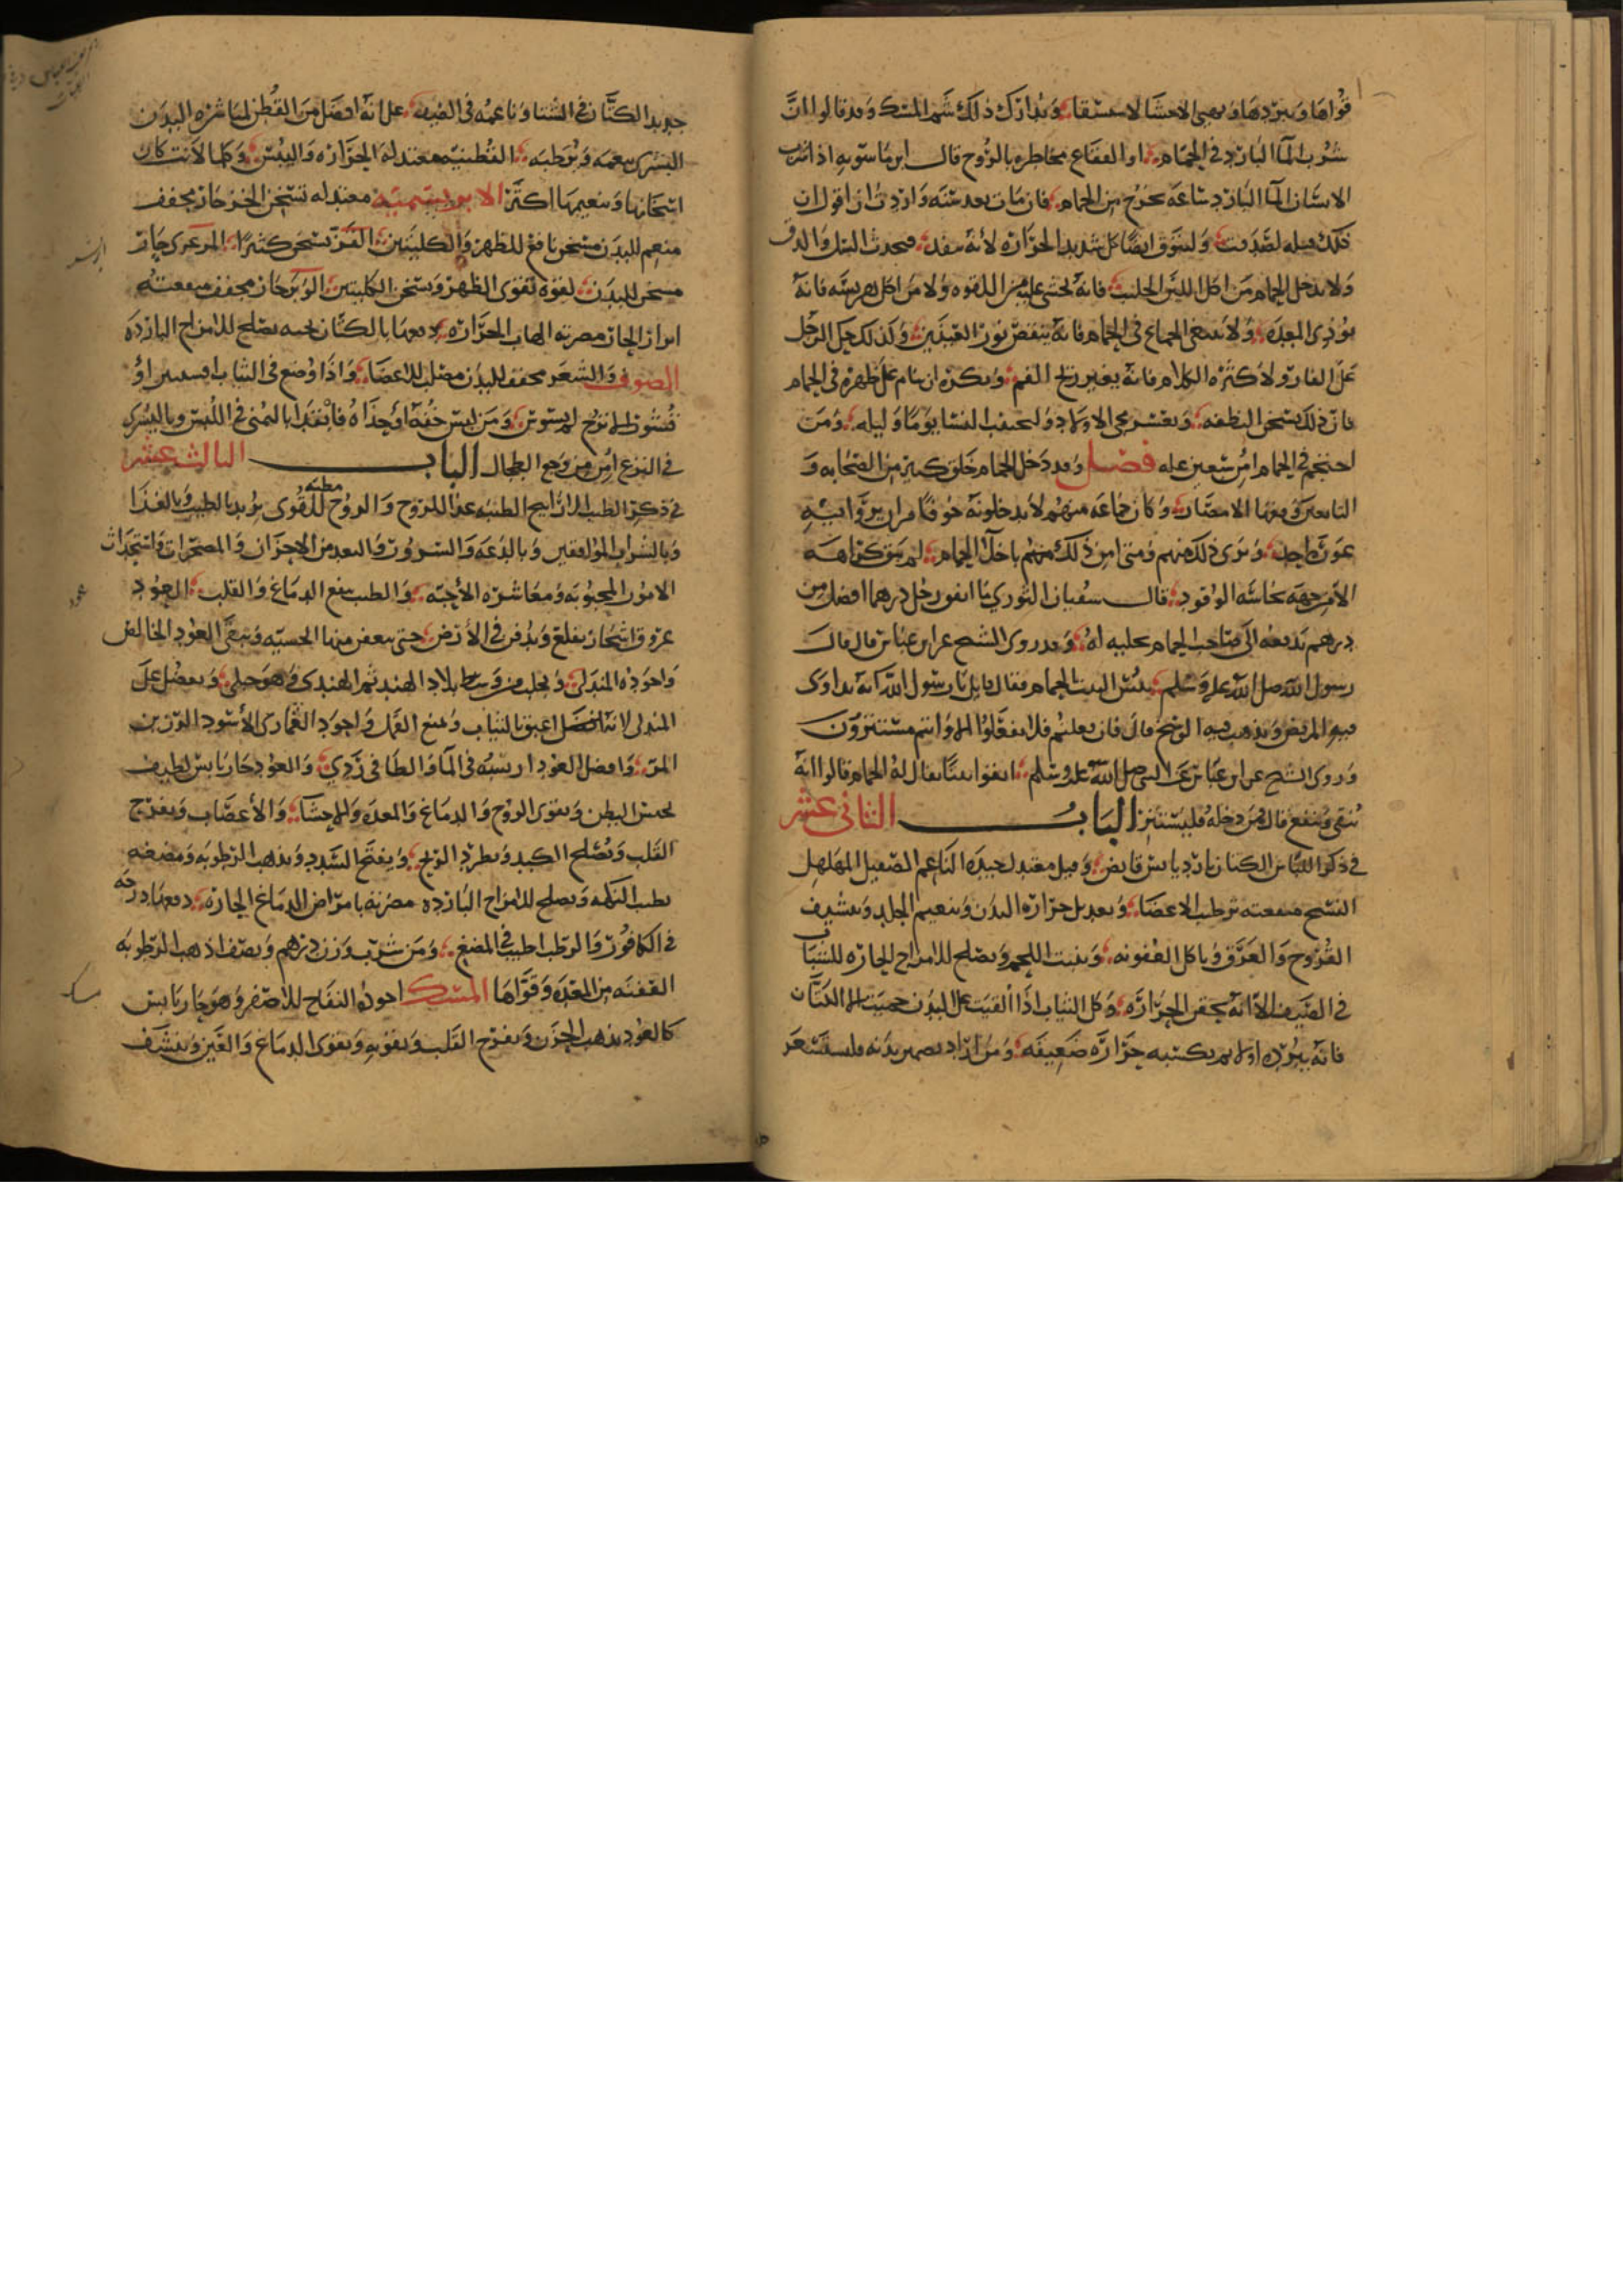 قواها ويبردها ويهيئ الاحشا للاستسقا ويدارك ذلك شم المسك وقد قالوا ان
شرب الما البارد في الحمام او الفقاع مخاطره بالروح قال ابن ماسويه اذا شرب
الانسان الما البارد ساعه يخرج من الحمام فان مات بعد سنه واردت ان اقول ان
ذلك قتله لصدقت وليتوق ايضا كل شديد الحراره لانه ينفد فيحدث السل والدق
ولا يدخل الحمام من اكل اللبن الحليب فانه يخشى عليه من اللقوه ولا من اكل هريسه فانه
يوذي المعده ولا ينبغي الجماع في الحمام فانه ينقص نور العينين وكذلك حك الرجل
على القار ولا كثره الكلام فانه يغير ريح الفم ويكره ان ينام على ظهره في الحمام
فان ذلك يسخن النطفه الاولاد وليجتنب النسا يوما وليله ومن
احتجم في الحمام امن سبعين عله فصل وقد دخل الحمام خلق كثير من الصحابه و
التابعين وفقها الامصار وكان جماعه منهم لا يدخلونه خوفا من ان يروا فيه
عوره احد ويرى ذلك منهم ومتى امن ذلك منهم باخلا الحمام لم يبق كراهه
الا من جهه نجاسه الوقود قال سفيان الثوري ما انفق رجل درهما افضل من
درهم يدفعه الى صاحب الحمام يخليه له وقد روى الشيخ عن ابن عباس قال قال
رسول الله صلى الله عليه وسلم بئس البيت الحمام فقال قايل يا رسول الله انه يداوى
فيه المريض ويذهب فيه الوسخ قال فان فعلتم فلا تفعلوا الا وانتم مستترون
وروى الشيخ عن ابن عباس عن النبي صلى الله عليه وسلم اتقوا بيتا يقال له الحمام قالوا انه
ينقي وينفع قال فمن دخله فليستتر الباب الثاني عشر
في ذكر اللباس الكتان بارد يابس قابض وقيل معتدل جيده الناعم الصقيل المهلهل
النسج منفعته ترطب الاعضا وتعديل حراره البدن وتنعيم الجلد وتنشيف
القروح والعرق وياكل العفونه وينبت اللحم ويصلح للامزاج الحاره للشباب
في الصيف الا انه يحقن الحراره وكل الثياب اذا القيت على البدن حميت الا الكتان
فانه يبرده اولا ثم يكتسبه حراره ضعيفه ومن اراد بدنه فليستشعر
جديد الكتان في الشتا وناعمه في الصيف على انه افضل من القطن لمباشره البدن
البشرى ينعمه ويرطبه القطنيه معتدله الحراره واليبس وكلما لانت كان
اسخانها وتنعيمها اكثر الابريسميه معتدله تسخن الخز حار يجفف
منعم للبدن مسخن نافع للظهر والكليتين القز يسخن كثيرا المرعزى حار
مسخن للبدن لقوه تقوى الظهر ويسخن الكليتين الوبر حار مجفف منفعته
ابراز الحار مضرته الهاب الحراره دفعها بالكتان تحته يصلح للامزاج البارده
الصوف والشعر مجفف للبدن مصلب للاعضا واذا وضع في الثياب افسنتين او
قشور الاترج لم يسوس ومن لبس خفه او حذاه فابتدا باليمنى في اللبس وباليسرى
في النزع امن من وجع الطحال الباب الثالث عشر
في ذكر الطيب الارايح الطيبه غذا للروح والروح مطيه للقوى يزيد بالطيب وبالغذا
وبالشراب الموافقين وبالدعه والسرور والبعد من الاحزان والمضجرات واستجداث
الامور المحبوبه ومعاشره الاحبه والطيب ينفع الدماغ والقلب العود
عروق اشجار يقلع ويدفن في الارض حتى يتعفن منها الخشبيه ويبقى العود الخالص
واجوده المندلي ويجلب من وسط بلاد الهند ثم الهندي وهو جبلي ويفضل على
المندلي لانه اعبق بالثياب ويمنع القمل واجود القماري الاسود الرزين
المر وافضل العود ارسبه في الما والطافي ردي والعود حار يابس لطيف
يحبس البطن ويقوى الروح والدماغ والمعده والاحشا والاعصاب ويفرح
القلب ويصلح الكبد ويطرد الريح ويفتح السدد ويذهب الرطوبه ومضغه
يطيب النكهه ويصلح للامزاج البارده مضرته بامراض الدماغ الحاره دفعها درجه
في الكافور والرطب اطيب في المضغ ومن شرب وزن درهم ونصف اذهب الرطوبه
العفنه من المعده وقواها المسك اجوده التفاح للاصفر وهو حار يابس
كالعود يذهب الحزن ويفرح القلب ويقويه ويقوى الدماغ والعين وينشف
عود
مسك